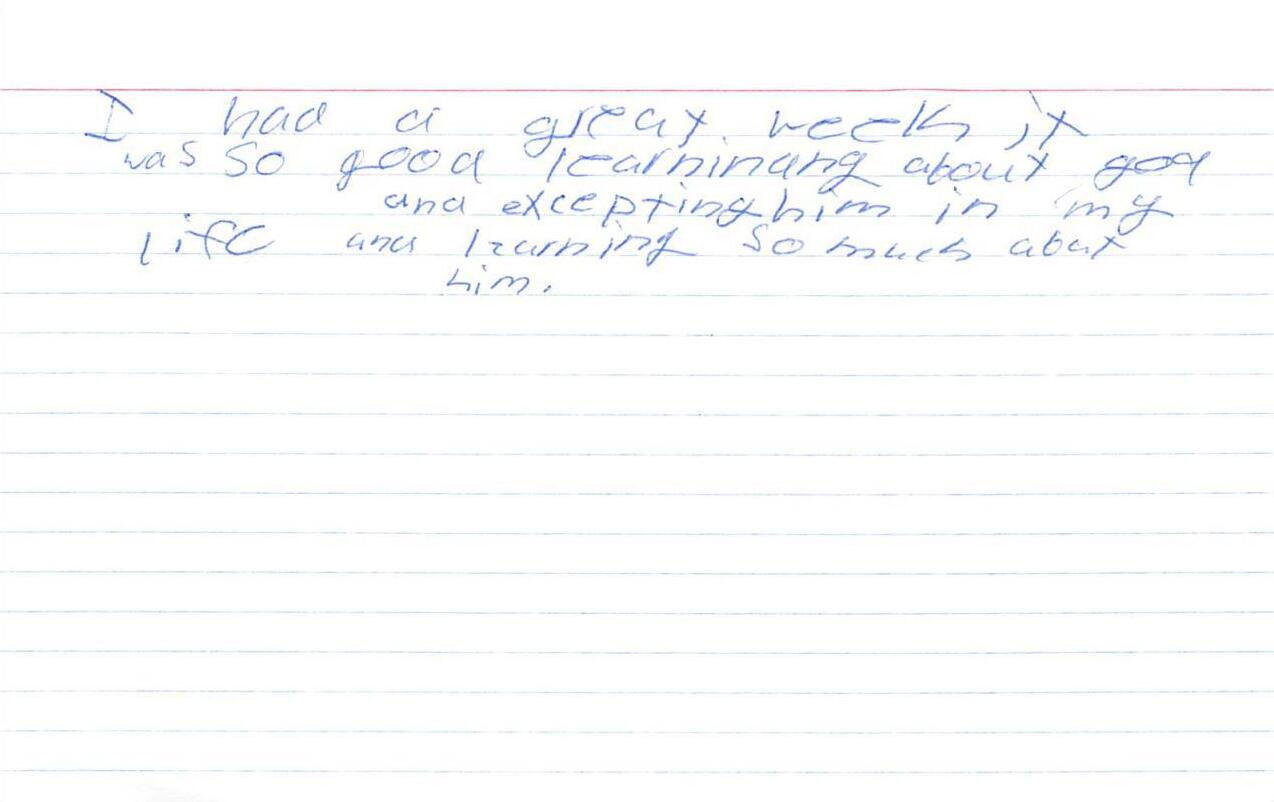 I had a great. week it
was so good learninang about god
and excepting him in my
life and learning so much about
him.